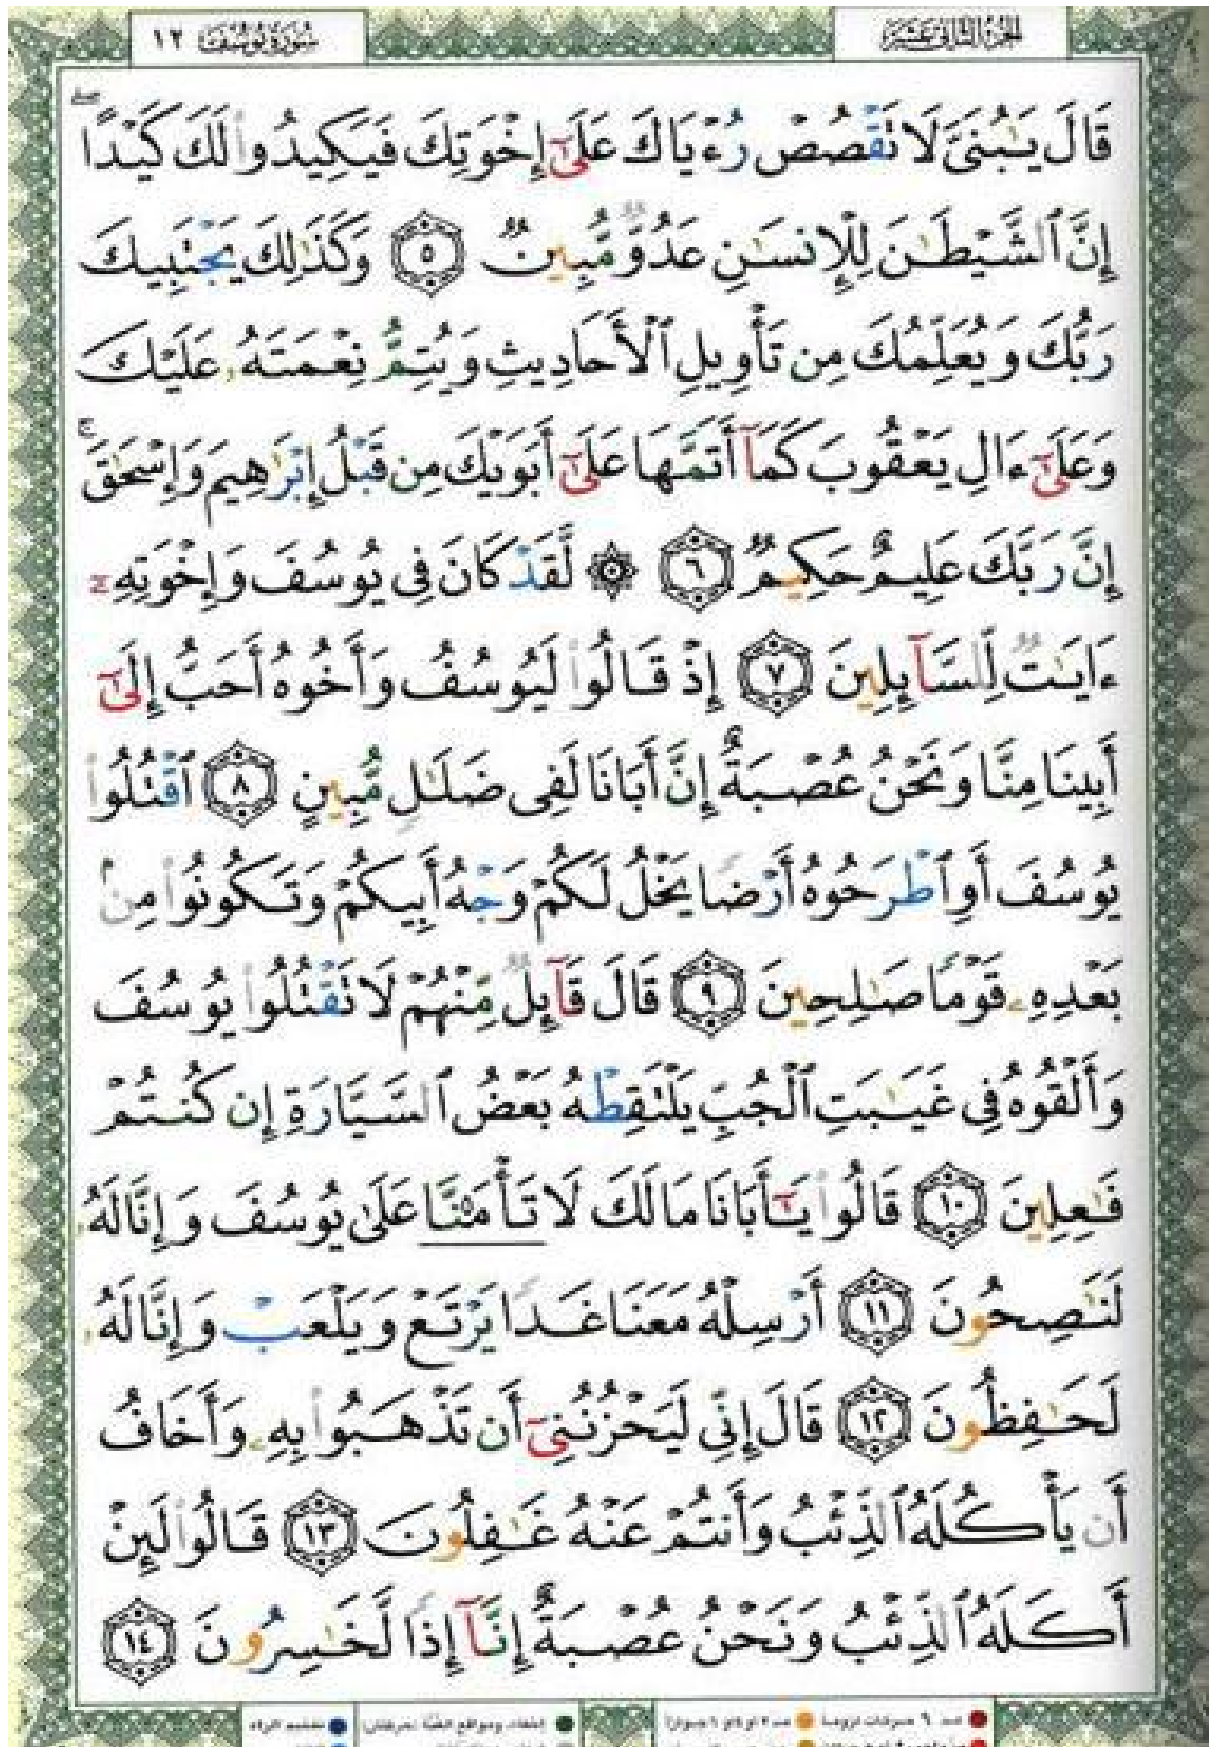 الجزء الثاني عشر
سورة يوسف ١٢
قَالَ يَـٰبُنَىَّ لَا تَقْصُصْ رُءْيَاكَ عَلَىٰٓ إِخْوَتِكَ فَيَكِيدُوا۟ لَكَ كَيْدًا ۖ
إِنَّ ٱلشَّيْطَـٰنَ لِلْإِنسَـٰنِ عَدُوٌّ مُّبِينٌ ٥ وَكَذَٰلِكَ يَجْتَبِيكَ
رَبُّكَ وَيُعَلِّمُكَ مِن تَأْوِيلِ ٱلْأَحَادِيثِ وَيُتِمُّ نِعْمَتَهُۥ عَلَيْكَ
وَعَلَىٰٓ ءَالِ يَعْقُوبَ كَمَآ أَتَمَّهَا عَلَىٰٓ أَبَوَيْكَ مِن قَبْلُ إِبْرَٰهِيمَ وَإِسْحَـٰقَ ۚ
إِنَّ رَبَّكَ عَلِيمٌ حَكِيمٌ ٦ ۞ لَّقَدْ كَانَ فِى يُوسُفَ وَإِخْوَتِهِۦٓ
ءَايَـٰتٌ لِّلسَّآئِلِينَ ٧ إِذْ قَالُوا۟ لَيُوسُفُ وَأَخُوهُ أَحَبُّ إِلَىٰٓ
أَبِينَا مِنَّا وَنَحْنُ عُصْبَةٌ إِنَّ أَبَانَا لَفِى ضَلَـٰلٍ مُّبِينٍ ٨ ٱقْتُلُوا۟
يُوسُفَ أَوِ ٱطْرَحُوهُ أَرْضًا يَخْلُ لَكُمْ وَجْهُ أَبِيكُمْ وَتَكُونُوا۟ مِنۢ
بَعْدِهِۦ قَوْمًا صَـٰلِحِينَ ٩ قَالَ قَآئِلٌ مِّنْهُمْ لَا تَقْتُلُوا۟ يُوسُفَ
وَأَلْقُوهُ فِى غَيَـٰبَتِ ٱلْجُبِّ يَلْتَقِطْهُ بَعْضُ ٱلسَّيَّارَةِ إِن كُنتُمْ
فَـٰعِلِينَ ١٠ قَالُوا۟ يَـٰٓأَبَانَا مَا لَكَ لَا تَأْمَ۫نَّا عَلَىٰ يُوسُفَ وَإِنَّا لَهُۥ
لَنَـٰصِحُونَ ١١ أَرْسِلْهُ مَعَنَا غَدًا يَرْتَعْ وَيَلْعَبْ وَإِنَّا لَهُۥ
لَحَـٰفِظُونَ ١٢ قَالَ إِنِّى لَيَحْزُنُنِىٓ أَن تَذْهَبُوا۟ بِهِۦ وَأَخَافُ
أَن يَأْكُلَهُ ٱلذِّئْبُ وَأَنتُمْ عَنْهُ غَـٰفِلُونَ ١٣ قَالُوا۟ لَئِنْ
أَكَلَهُ ٱلذِّئْبُ وَنَحْنُ عُصْبَةٌ إِنَّآ إِذًا لَّخَـٰسِرُونَ ١٤